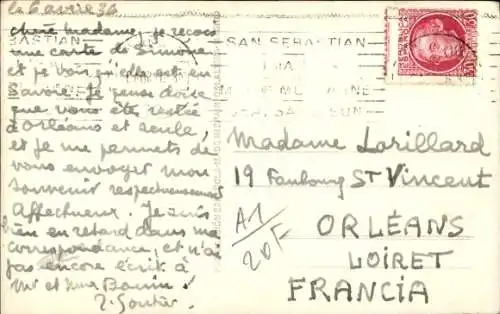 le 6 avril 36
chère madame, je reçois
une carte de Simone
et je vois qu'elle est en
Savoie. Je pense donc
que vous êtes restée
à Orléans et seule,
et je me permets de
vous envoyer mon
souvenir respectueusement
affectueux. Je suis
bien en retard dans ma
correspondance, et n'ai
pas encore écrit à
Mr et Mme
SAN SEBASTIAN
Madame Lorillard
19 Faubourg St Vincent
ORLÉANS
LOIRET
FRANCIA
A-1
20F